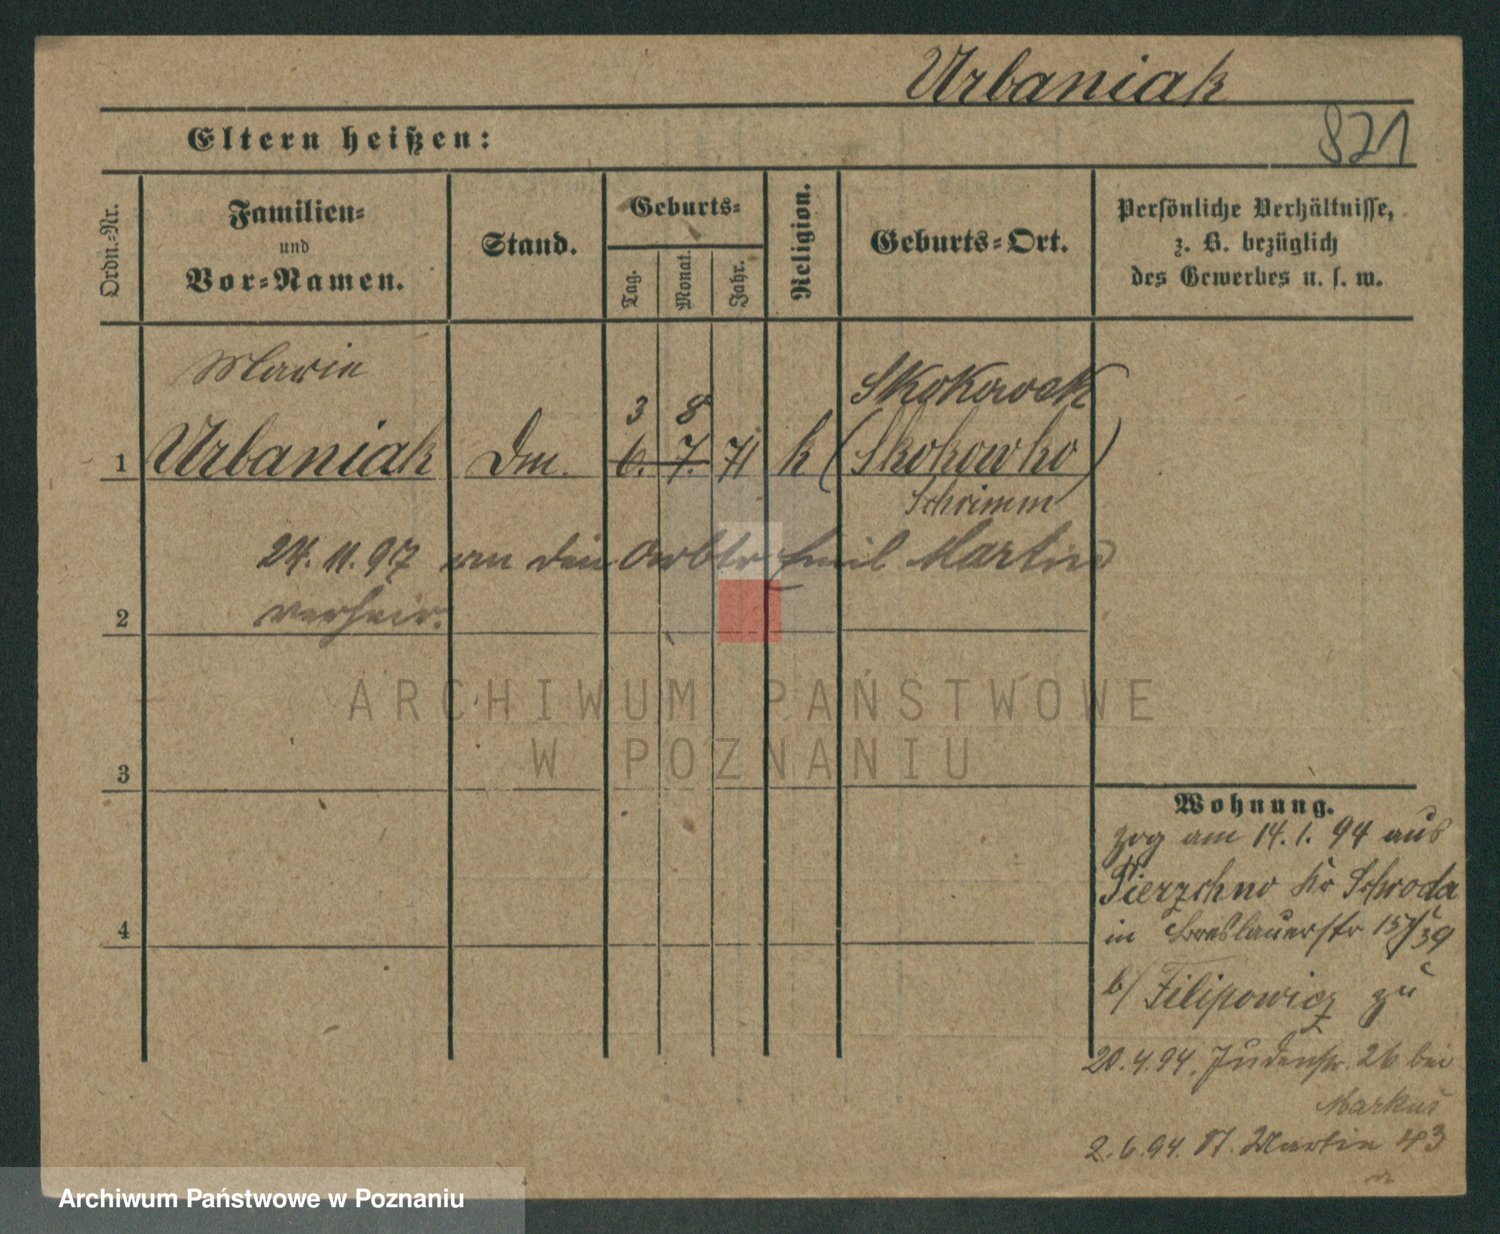 Urbaniak
821
Eltern heißen:
Ordn.-Nr.
Familien-
und
Vor-Namen.
Stand.
Geburts-
Tag.
Monat.
Jahr.
Religion.
Geburts-Ort.
Persönliche Verhältnisse,
z. B. bezüglich
des Gewerbes u. s. w.
Marie
3 8 Skokowek
1 Urbaniak Dm. 6. 7. 71 k (Skokowko)
Schrimm
24. 11. 97 an den Arbtr Emil Martin
2 verheir.
ARCHIWUM PAŃSTWOWE
W POZNANIU
3
4
Wohnung.
zog am 14.1.94 aus
Pierzchno Kr Schroda
in Breslauerstr 15/39
b/ Filipowicz zu
20.4.94. Judenstr. 26 bei
Markus
2.6.94. St. Martin 43
Archiwum Państwowe w Poznaniu